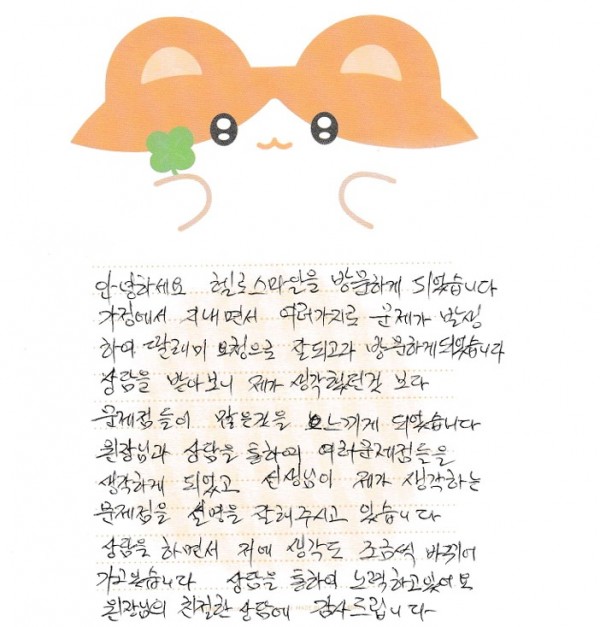 안녕하세요 헬로스마일을 방문하게 되었습니다
가정에서 지내면서 여러가지로 문제가 발생
하여 딸래미 요청으로 잘되고과 방문하게되었습니다
상담을 받아보니 제가 생각했던것 보다
문제점들이 많은것을 느끼게 되었습니다
원장님과 상담을 통하여 여러문제점들을
생각하게 되었고 선생님이 제가 생각하는
문제점을 설명을 잘해주시고 있습니다
상담을 하면서 저에 생각도 조금씩 바뀌어
가고있습니다 상담을 통하여 노력하고있어요
원장님의 친절한 상담에 감사드립니다